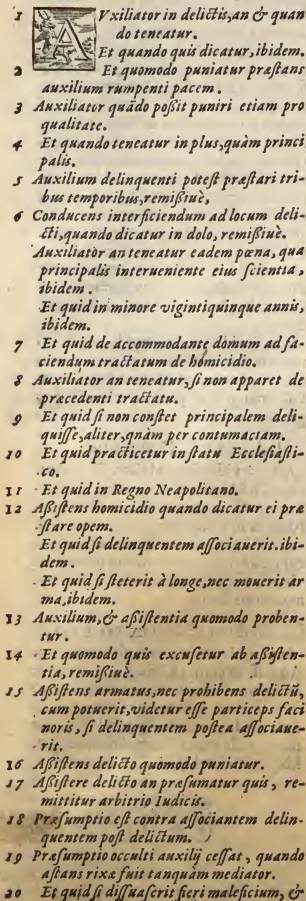 1 AVxiliator in delictis, an & quan
do teneatur.
Et quando quis dicatur, ibidem.
2 Et quomodo puniatur præstans
auxilium rumpenti pacem.
3 Auxiliatur quãdo poßit puniri etiam pro
qualitate.
4 Et quando teneatur in plus, quàm princi
palis.
5 Auxilium delinquenti potest præstari tri-
bus temporibus, remißiuè,
6 Conducens interficiendum ad locum deli-
cti, quando dicatur in dolo, remißiuè.
Auxiliatòr an teneatur eadem pœna, qua
principalis interueniente eius scientia,
ibidem.
Et quid in minore vigintiquinque annis,
ibidem.
7 Et quid de accommodante domum ad fa-
ciendum tractatum de homicidio.
8 Auxiliator an teneatur, si non apparet de
præcedenti tractatu.
9 Et quid si non constet principalem deli-
quisse, aliter, quàm per contumaciam.
10 Et quid practicetur in statu Ecclesiasti-
co.
11 Et quid in Regno Neapolitano.
12 Aßistens homicidio quando dicatur ei præ
stare opem.
Et quid si delinquentem associauerit. ibi-
dem.
Et quid si steterit à longe, nec mouerit ar
ma, ibidem.
13 Auxilium, & aßistentia quomodo proben-
tur.
14 Et quomodo quis excusetur ab aßisten-
tia, remißiuè.
15 Aßistens armatus, nec prohibens delictũ,
cum potuerit, videtur esse particeps faci
noris, si delinquentem postea associaue-
rit.
16 Aßistens delicto quomodo puniatur.
17 Aßistere delicto an præsumatur quis, re-
mittitur arbitrio Iudicis.
18 Præsumptio est contra associantem delin-
quentem post delictum.
19 Præsumptio occulti auxilij cessat, quando
astans rixæ fuit tanquam mediator.
20 Et quid si dissuaserit fieri maleficium, &